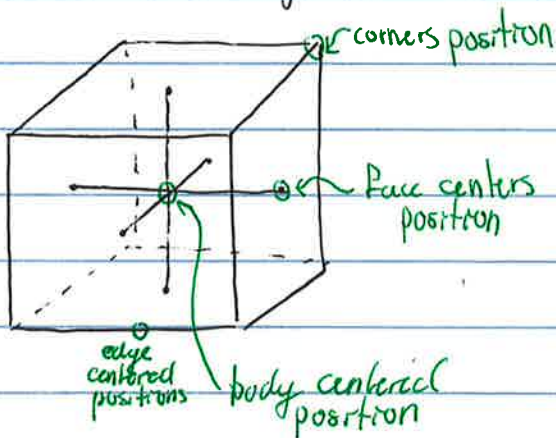 corners position
face centers
position
edge
centered
positions
body centered
position